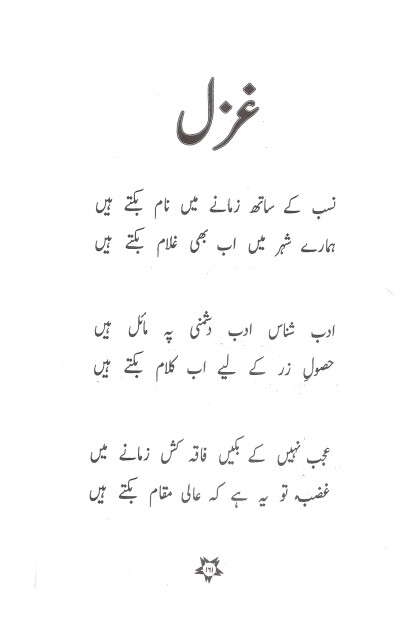 غزل
نسب کے ساتھ زمانے میں نام بکتے ہیں
ہمارے شہر میں اب بھی غلام بکتے ہیں
ادب شناس ادب دشمنی پہ مائل ہیں
حصولِ زر کے لیے اب کلام بکتے ہیں
عجب نہیں کے بکیں فاقہ کش زمانے میں
غضب تو یہ ہے کہ عالی مقام بکتے ہیں
۱۶۱